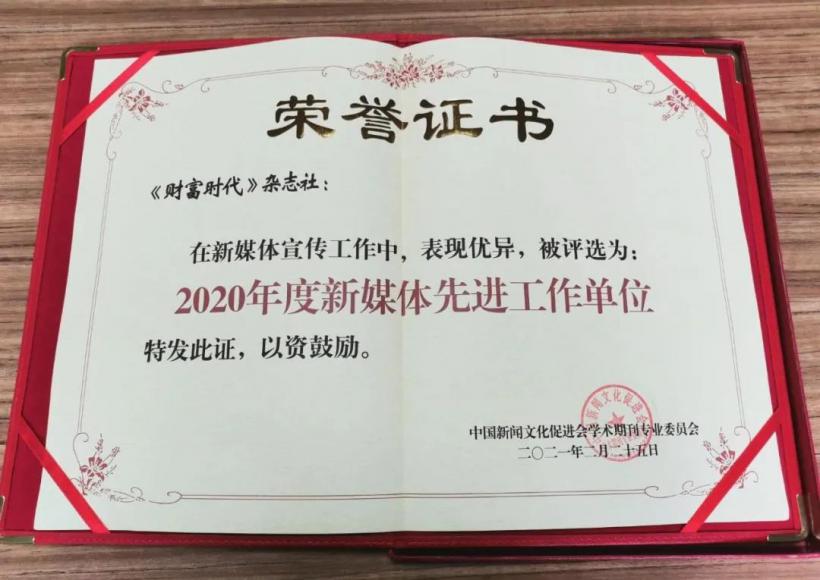 荣誉证书
《财富时代》杂志社：
在新媒体宣传工作中，表现优异，被评选为：
2020年度新媒体先进工作单位
特发此证，以资鼓励。
中国新闻文化促进会学术期刊专业委员会
二〇二一年二月二十五日